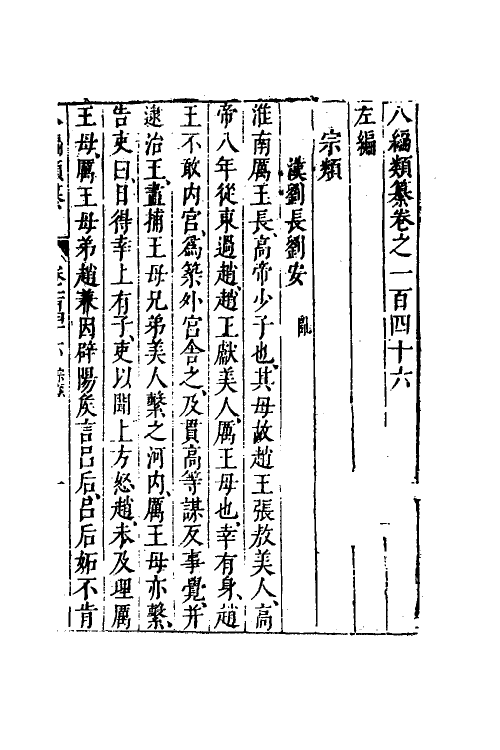 八編類纂卷之一百四十六
左編
宗類
漢劉長劉安 亂
淮南厲王長、高帝少子也、其母故趙王張敖美人、高
帝八年從東過趙、趙王獻美人、厲王母也、幸有身、趙
王不敢內宮、爲築外宮舍之、及貫高等謀反事覺、并
逮治王、盡捕王母兄弟美人繫之河內、厲王母亦繫、
告吏曰、日得幸上有子、吏以聞上方怒、趙、未及理厲
王母、厲王母弟趙兼因辟陽矦言呂后、呂后妬不肯
八編類纂 卷一百四十六 宗類 一